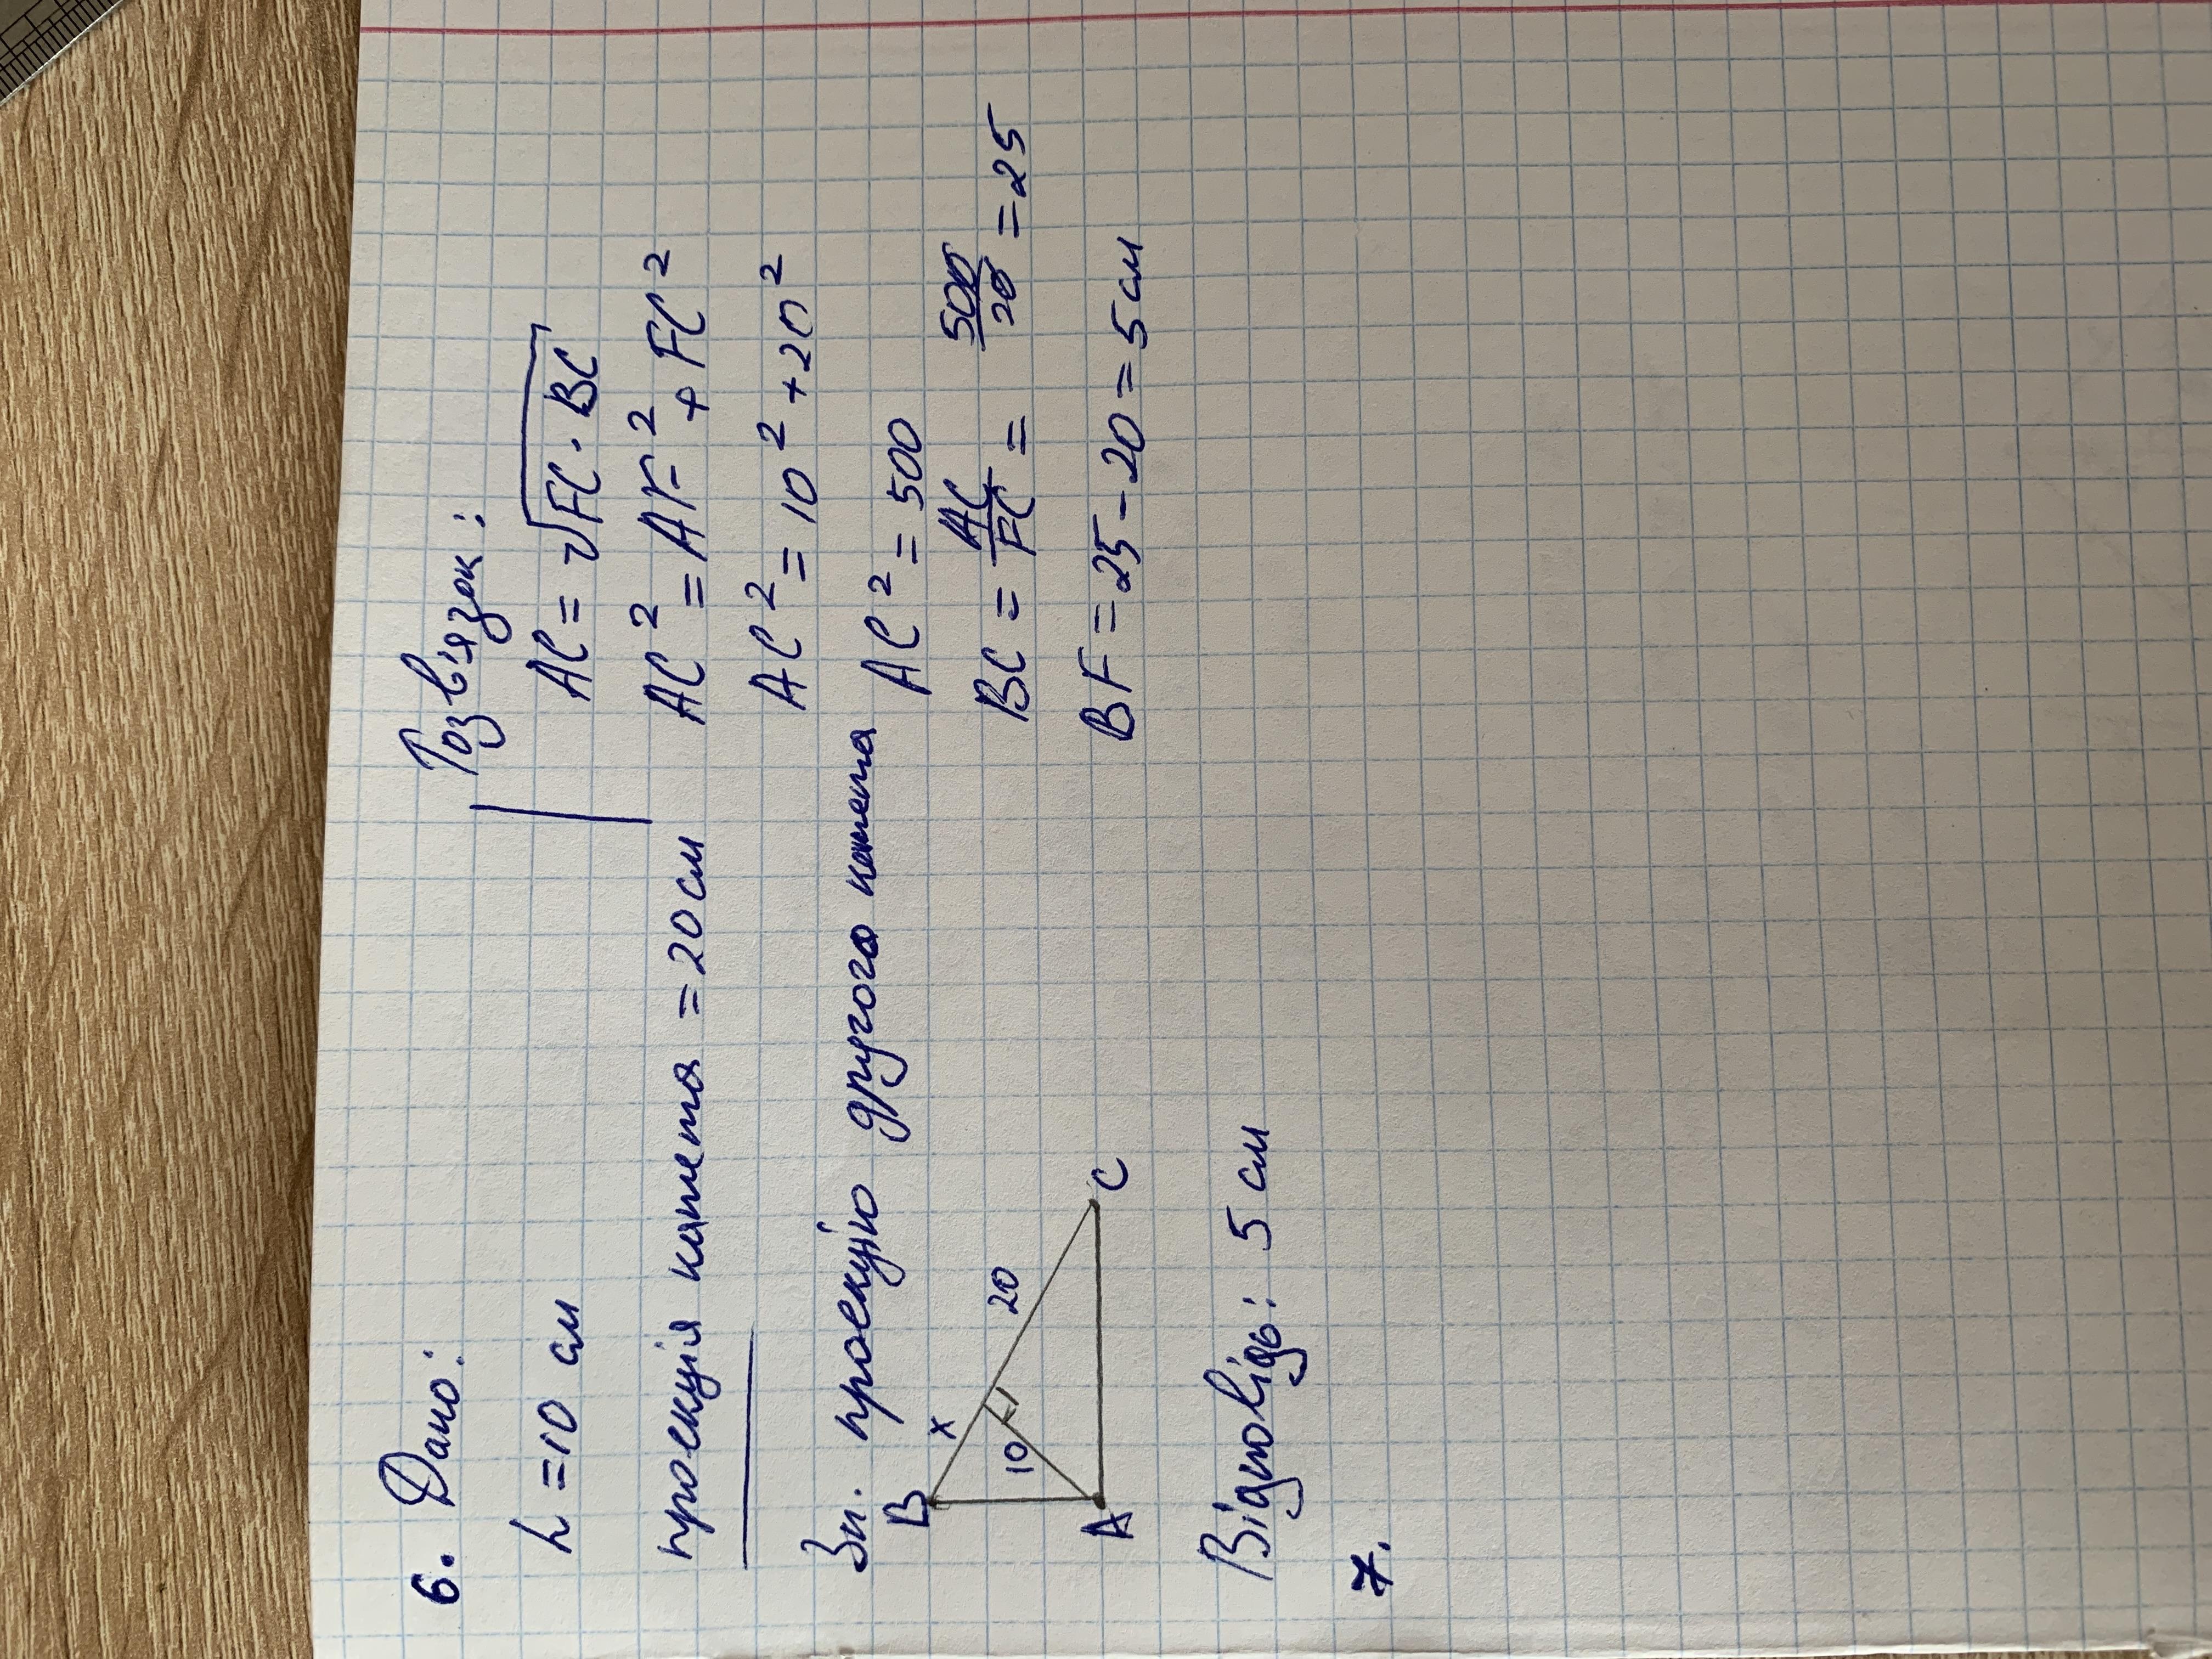 6. Дано:
h = 10 см
проекція катета = 20 см
Зн. проекцію другого катета
B
x
20
10
A
C
Відповідь: 5 см
7.
Розв'язок:
AC = √FC · BC
AC² = AF² + FC²
AC² = 10² + 20²
AC² = 500
BC = AC/FC = 500/20 = 25
BF = 25 - 20 = 5 см